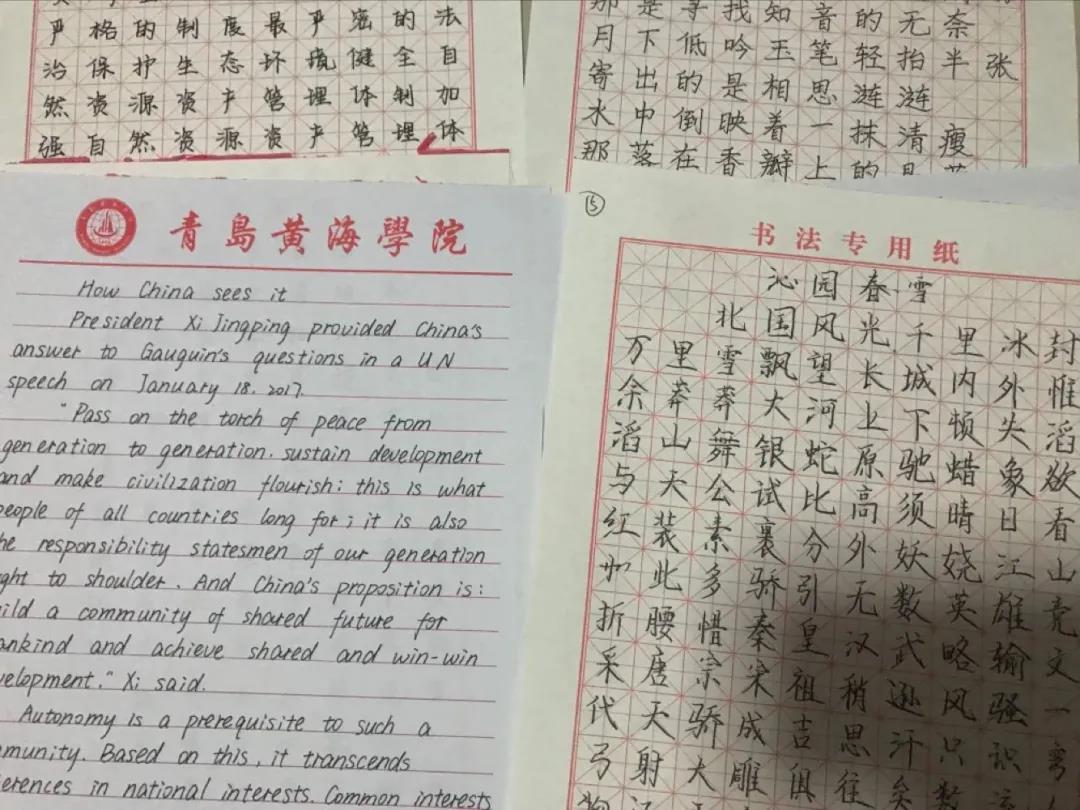 严格的制度最严密的法
治保护生态环境健全自
然资源资产管理体制加
强自然资源资产管理体
那是寻找知音的无奈
月下低吟玉笔轻抬半张
寄出的是相思涟涟
水中倒映着一抹清瘦
那落在香瓣上的
青島黄海學院
How China sees it
President Xi Jingping provided China's
answer to Gauguin's questions in a UN
speech on January 18. 2017.
"Pass on the torch of peace from
generation to generation. sustain development
and make civilization flourish: this is what
people of all countries long for; it is also
he responsibility statesmen of our generation
ght to shoulder. And China's proposition is:
uild a community of shared future for
ankind and achieve shared and win-win
velopment." Xi said.
Autonomy is a prerequisite to such a
mmunity. Based on this, it transcends
ferences in national interests. Common interests
⑮
书法专用纸
沁园春雪
北国风光千里冰封
万里雪飘望长城内外惟
余莽莽大河上下顿失滔
滔山舞银蛇原驰蜡象欲
与天公试比高须晴日看
红装素裹分外妖娆江山
如此多娇引无数英雄竞
折腰惜秦皇汉武略输文
采唐宗宋祖稍逊风骚一
代天骄成吉思汗只识弯
弓射大雕俱往矣数